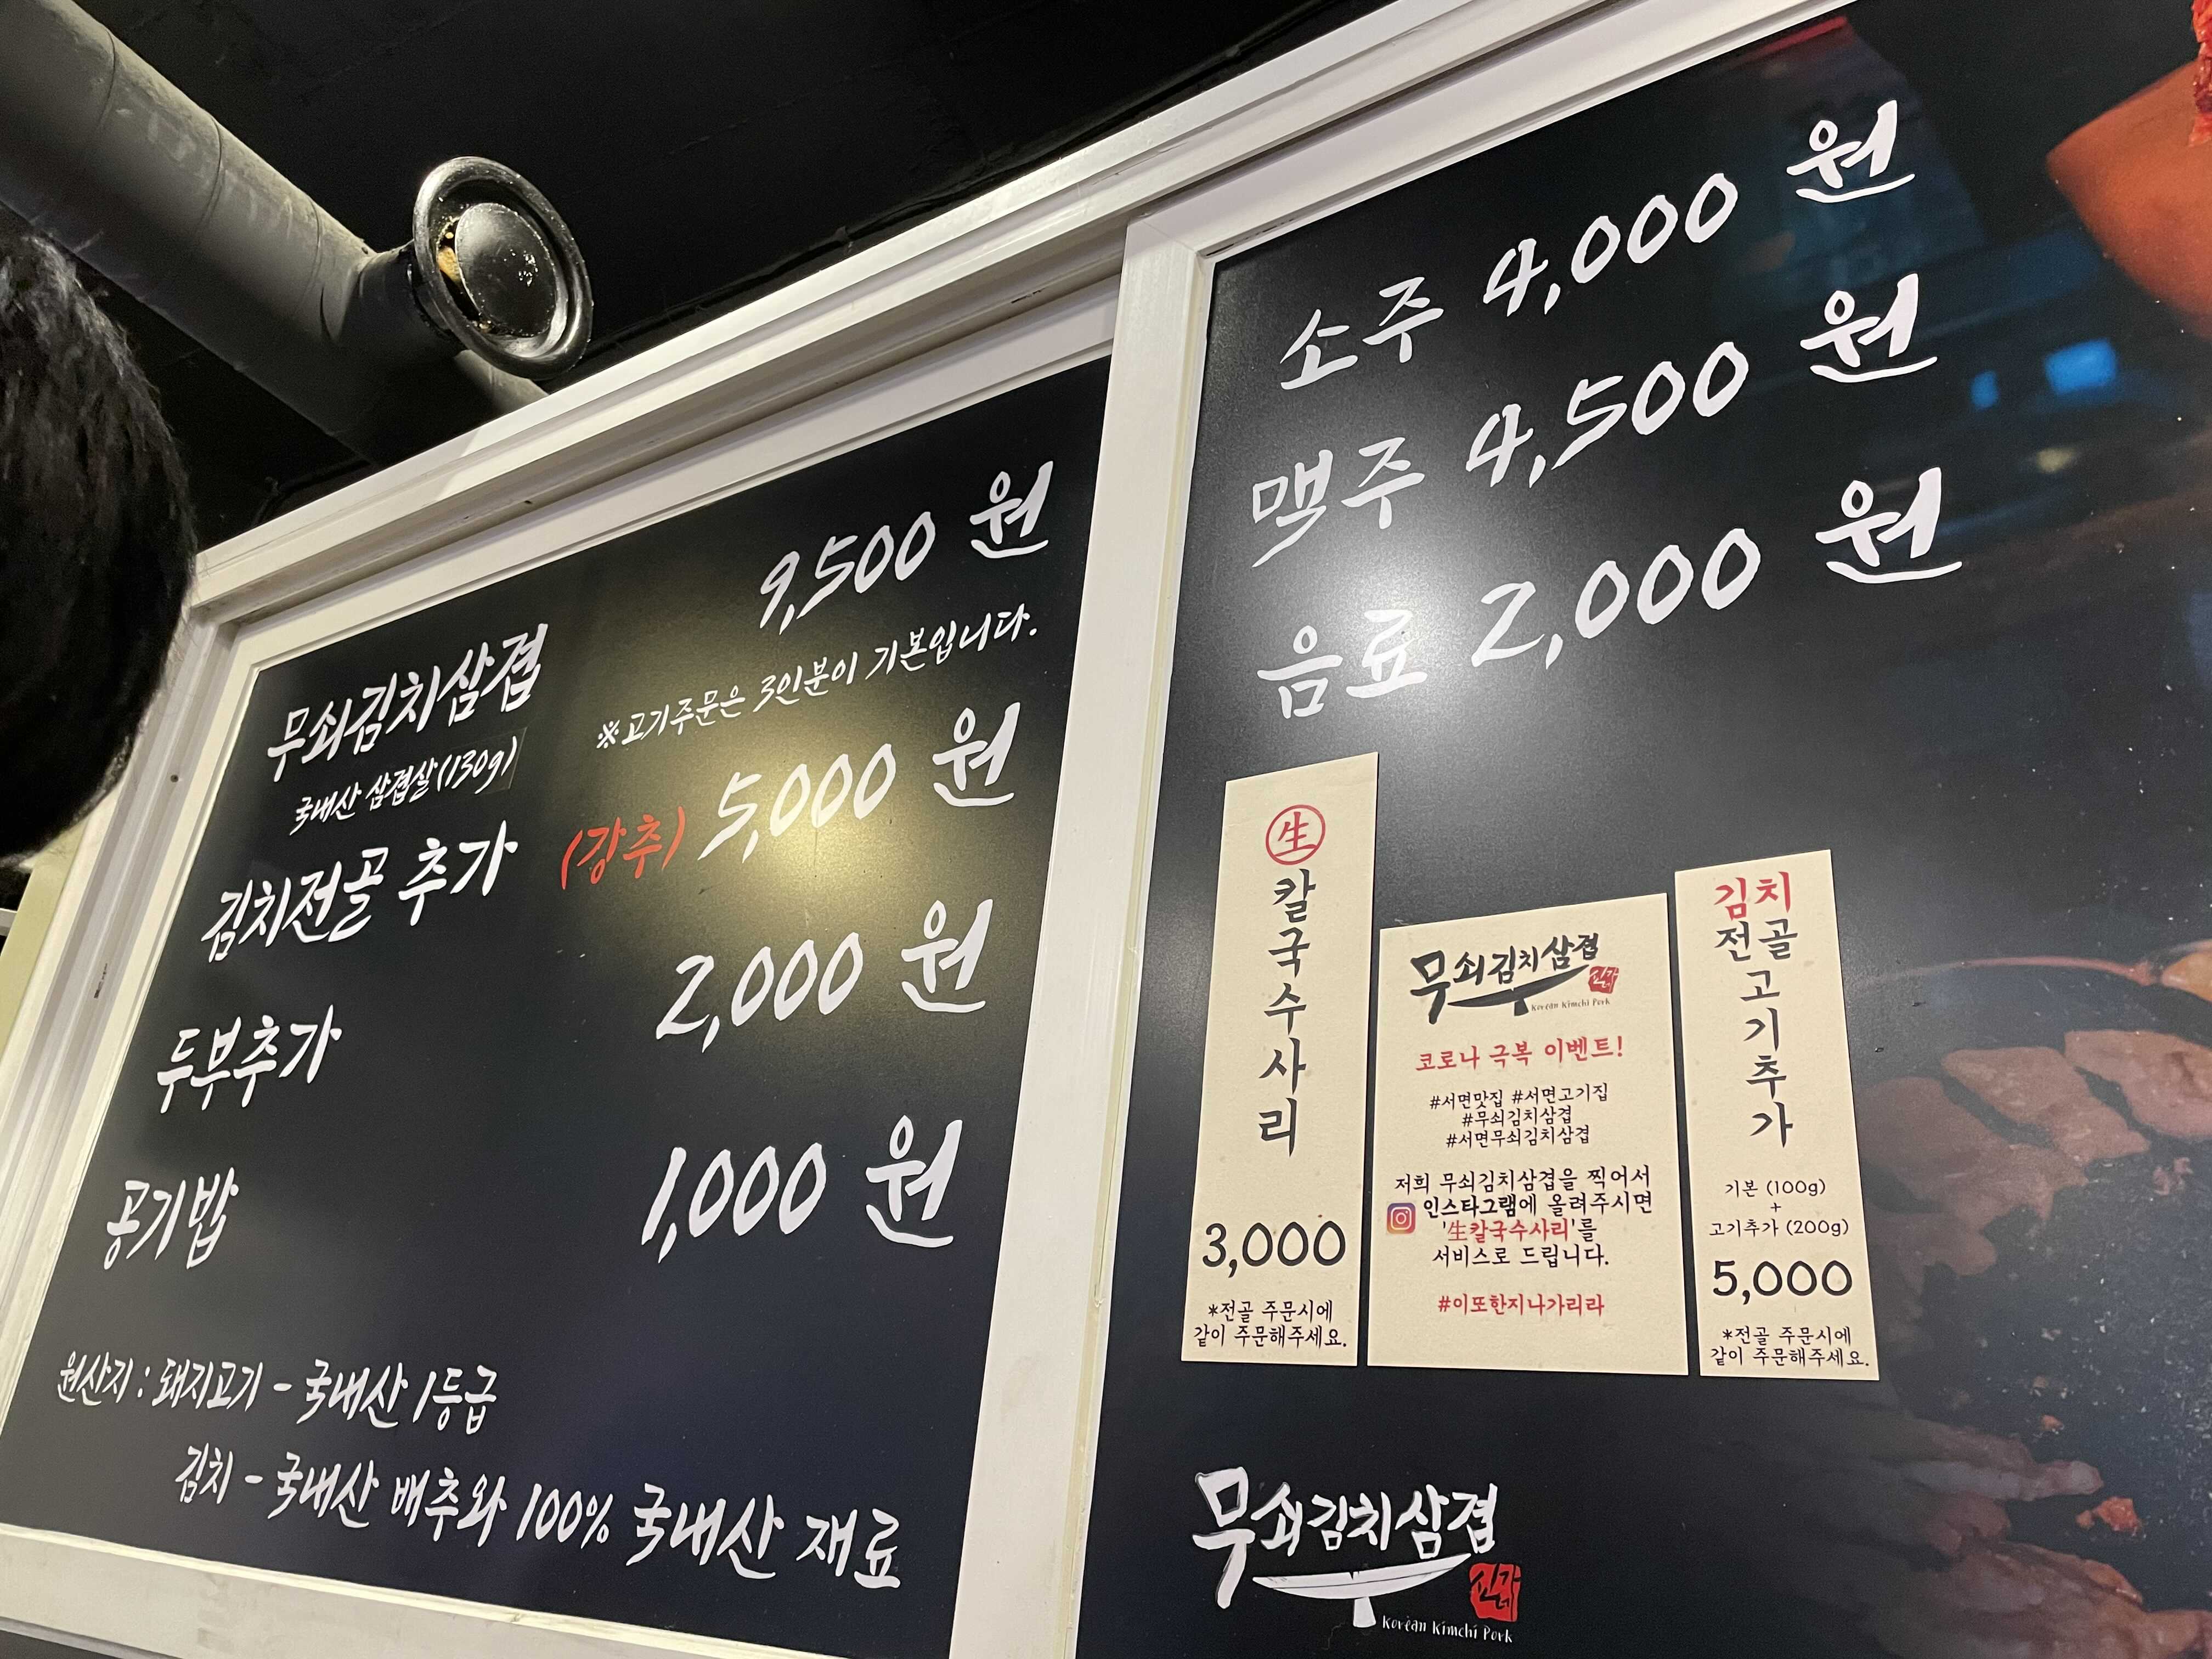 무쇠김치삼겹 9,500 원
국내산 삼겹살(130g) ※고기주문은 3인분이 기본입니다.
김치전골 추가 (강추) 5,000 원
두부추가 2,000 원
공기밥 1,000 원
원산지 : 돼지고기 - 국내산 1등급
김치 - 국내산 배추와 100% 국내산 재료
소주 4,000 원
맥주 4,500 원
음료 2,000 원
生
칼국수사리
3,000
*전골 주문시에
같이 주문해주세요.
무쇠김치삼겹
Korean Kimchi Pork
코로나 극복 이벤트!
#서면맛집 #서면고기집
#무쇠김치삼겹
#서면무쇠김치삼겹
저희 무쇠김치삼겹을 찍어서
인스타그램에 올려주시면
'生칼국수사리'를
서비스로 드립니다.
#이또한지나가리라
김치
전골
고기추가
기본 (100g)
+
고기추가 (200g)
5,000
*전골 주문시에
같이 주문해주세요.
무쇠김치삼겹
Korean Kimchi Pork